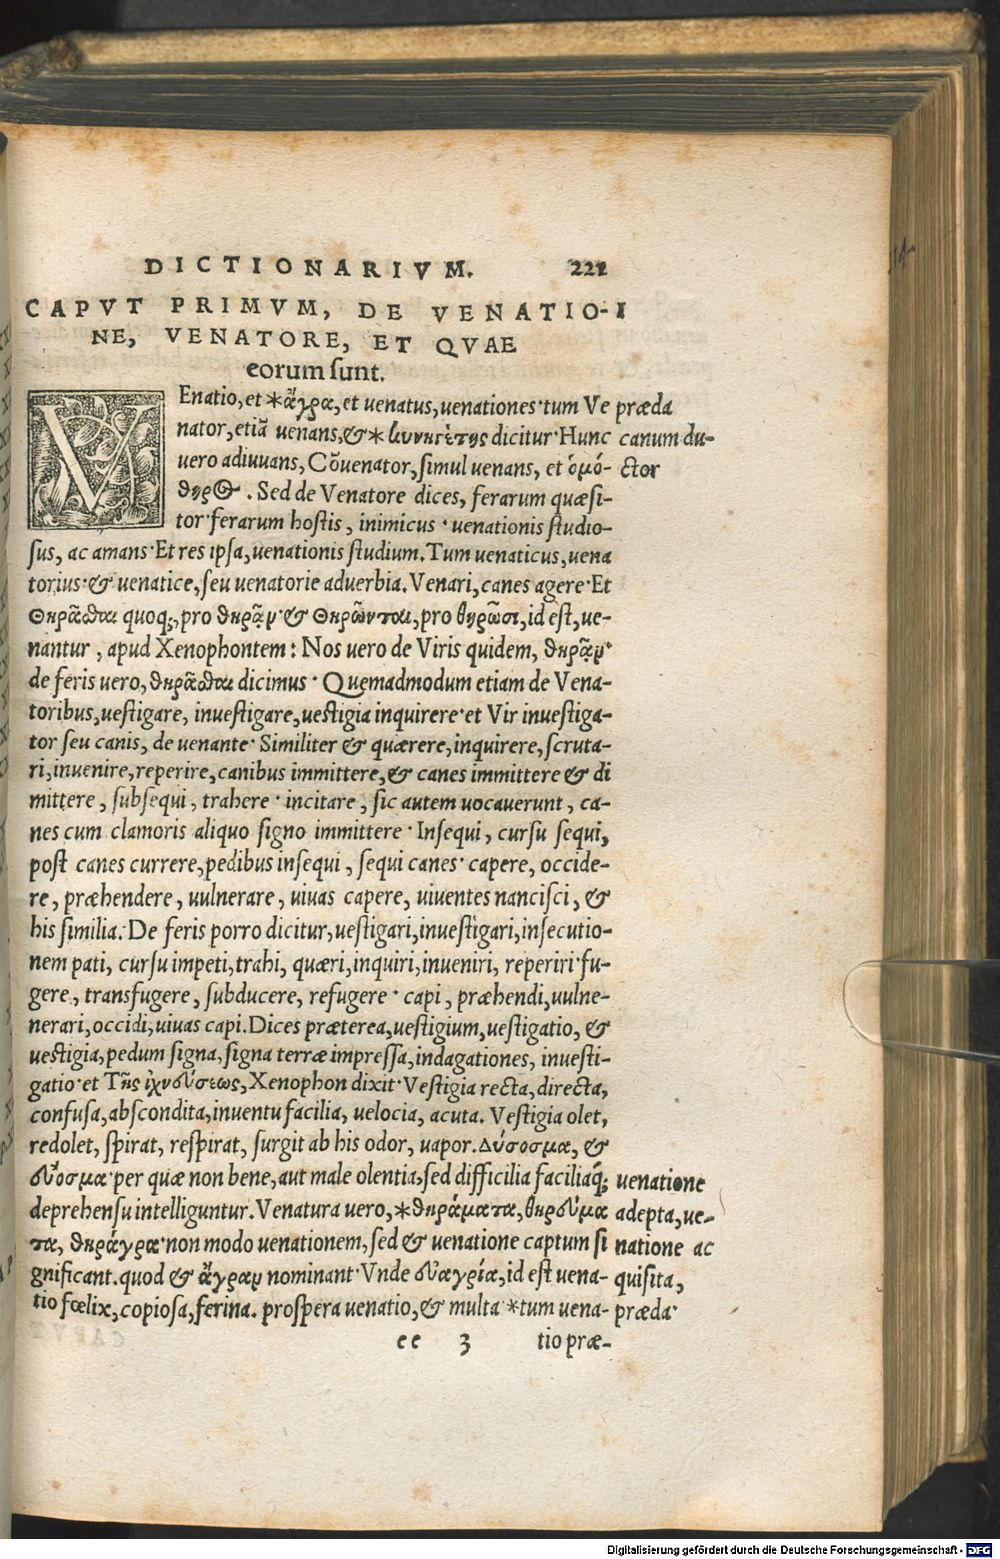 DICTIONARIVM. 221
CAPVT PRIMVM, DE VENATIO- I
NE, VENATORE, ET QVAE
eorum sunt.
VEnatio, et *ἄγρα, et uenatus, uenationes· tum Ve præda
nator, etiã uenans, & * κυνηγέτης dicitur· Hunc canum du-
uero adiuuans, Cõuenator, simul uenans, et ὁμό- ctor
θηρος. Sed de Venatore dices, ferarum quæsi-
tor· ferarum hostis, inimicus · uenationis studio-
sus, ac amans· Et res ipsa, uenationis studium. Tum uenaticus, uena
torius· & uenatice, seu uenatorie aduerbia. Venari, canes agere· Et
Θηρᾶσθαι quoq;, pro θηρᾷν· & Θηρῶνται, pro θηρῶσι, id est, ue-
nantur, apud Xenophontem: Nos uero de Viris quidem, θηρᾷν·
de feris uero, θηρᾶσθαι dicimus · Quemadmodum etiam de Vena-
toribus, uestigare, inuestigare, uestigia inquirere· et Vir inuestiga-
tor seu canis, de uenante· Similiter & quærere, inquirere, scruta-
ri, inuenire, reperire, canibus immittere, & canes immittere & di
mittere, subsequi, trahere · incitare, sic autem uocauerunt, ca-
nes cum clamoris aliquo signo immittere · Insequi, cursu sequi,
post canes currere, pedibus insequi, sequi canes· capere, occide-
re, præhendere, uulnerare, uiuas capere, uiuentes nancisci, &
his similia. De feris porro dicitur, uestigari, inuestigari, insecutio-
nem pati, cursu impeti, trahi, quæri, inquiri, inueniri, reperiri· fu-
gere, transfugere, subducere, refugere · capi, præhendi, uulne-
nerari, occidi, uiuas capi. Dices præterea, uestigium, uestigatio, &
uestigia, pedum signa, signa terræ impressa, indagationes, inuesti-
gatio· et Τῆς ἰχνεύσεως, Xenophon dixit· Vestigia recta, directa,
confusa, abscondita, inuentu facilia, uelocia, acuta. Vestigia olet,
redolet, spirat, respirat, surgit ab his odor, uapor. Δύσοσμα, &
εὔοσμα· per quæ non bene, aut male olentia, sed difficilia faciliaq́; uenatione
deprehensu intelliguntur. Venatura uero, *θηράματα, θηρεύμα adepta, ue-
τα, θηράγρα· non modo uenationem, sed & uenatione captum si natione ac
gnificant. quod & ἄγραν nominant· Vnde εὐαγρία, id est uena- quisita,
tio fœlix, copiosa, ferina. prospera uenatio, & multa· *tum uena- præda·
ee 3 tio præ-
Digitalisierung gefördert durch die Deutsche Forschungsgemeinschaft - DFG